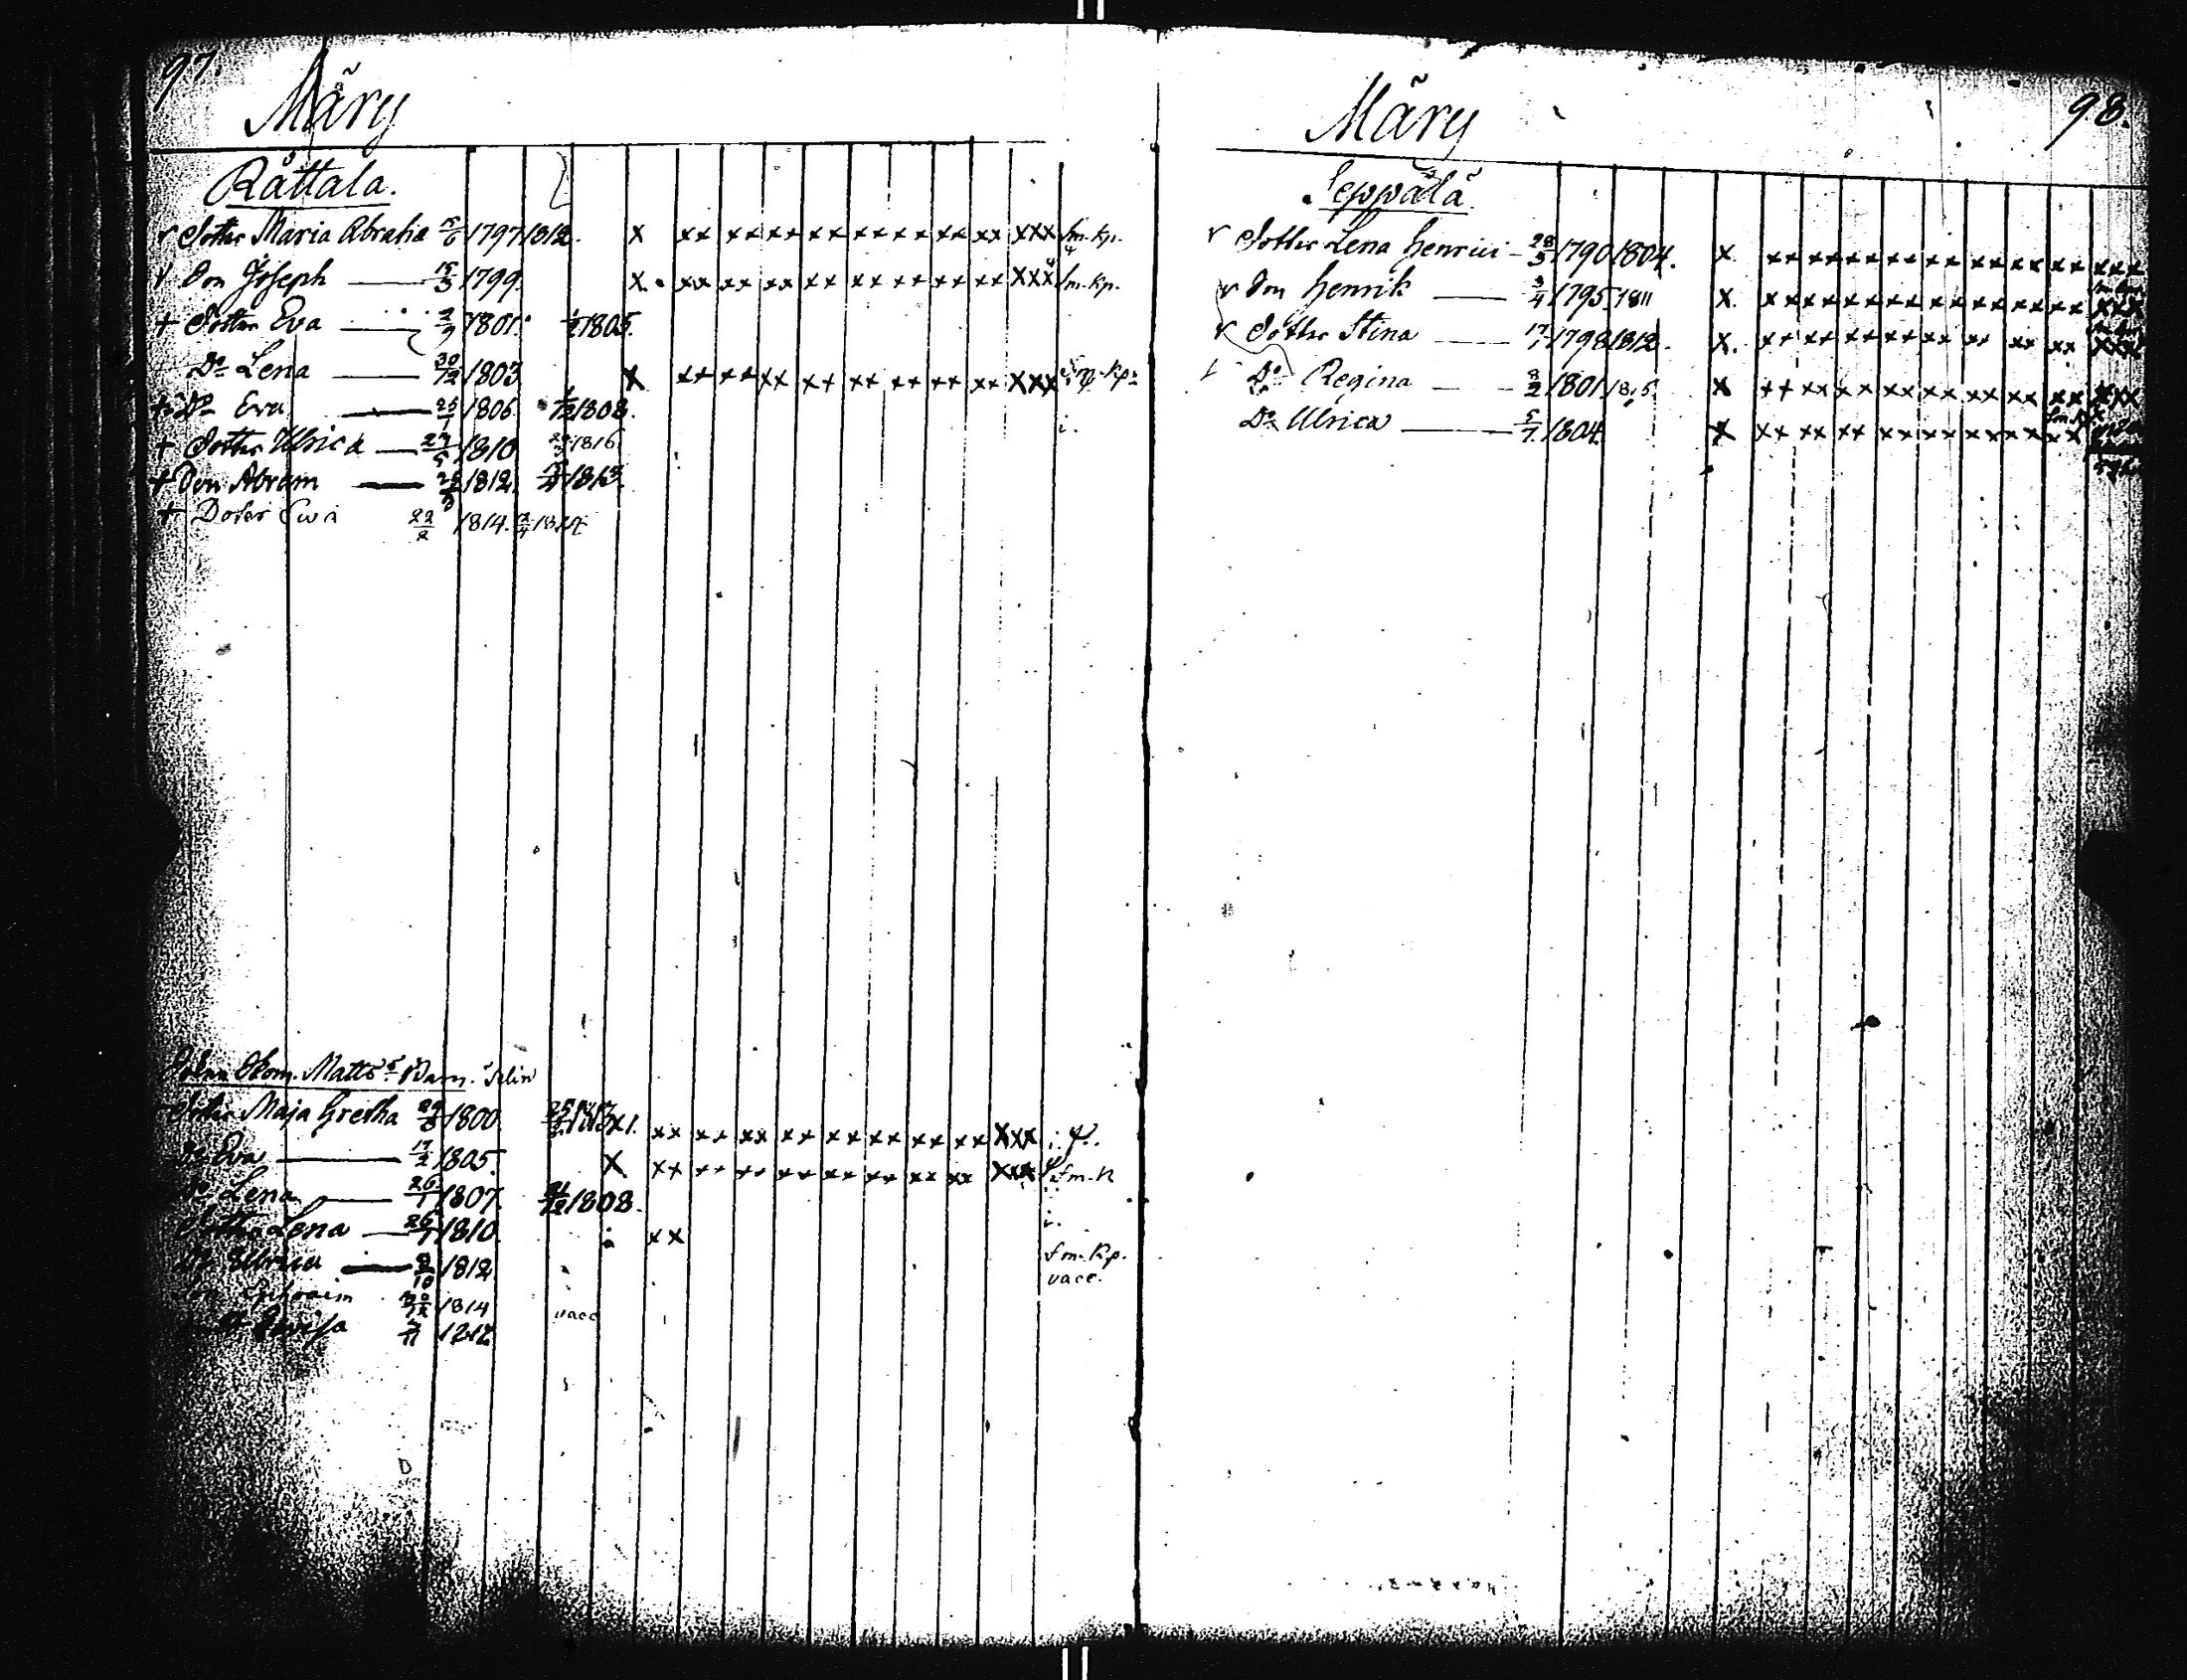 97.
Märy
Råttala.
v Dotter Maria Abraha 15/6 1797 1812. x xx xx xx xx xx xx xx xx xxx sm.kp.
v Son Joseph 15/3 1799. x xx xx xx xx xx xx xx xx xxx sm.kp.
+ Dotter Eva 2/9 1801. 1805.
Do Lena 30/12 1803 x xx xx xx xx xx xx xx xx xxx
+ Do Eva 1806. 1808. i.
+ Dotter Ulrica 1810 1816
+ Son Abram 1812. 1813.
+ Doter Ewa 22/2 1814.
Matts Barn.
Dotter Maja Gretha 1800. xx xx xx xx xx xx xx xx xxx
Do Eva 17/2 1805. x xx xx xx xx xx xx xx xx xxx
Do Lena 26/1 1807. 1808.
Dotter Lena 1810. xx i.
Do Ulrica 8/10 1812 sm.kp.
vacc.
1814 vacc
98.
Märy
Seppälä
v Dotter Lena Henrici 28/5 1790 1804. x xx xx xx xx xx xx xx xx xxx
v Son Henrik 3/4 1795. 1811 x. xx xx xx xx xx xx xx xx xxx
v Dotter Stina 17/7 1798 1812. x. xx xx xx xx xx xx xx xx xxx
Do Regina 3/2 1801 x xx xx xx xx xx xx xx xx xxx
Do Ulrica 5/7 1804. x xx xx xx xx xx xx xx xx